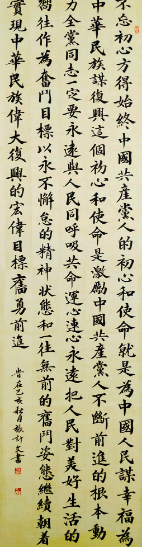 不忘初心方得始终中國共産黨人的初心和使命就是為中國人民謀幸福為
中華民族謀復興這個初心和使命是激勵中國共産黨人不斷前進的根本動
力全黨同志一定要永遠與人民同呼吸共命運心連心永遠把人民對美好生活的
嚮往作為奮鬥目標以永不懈怠的精神狀態和一往無前的奮鬥姿態繼續朝着
實現中華民族偉大復興的宏偉目標奮勇前進
歲在己亥秋月